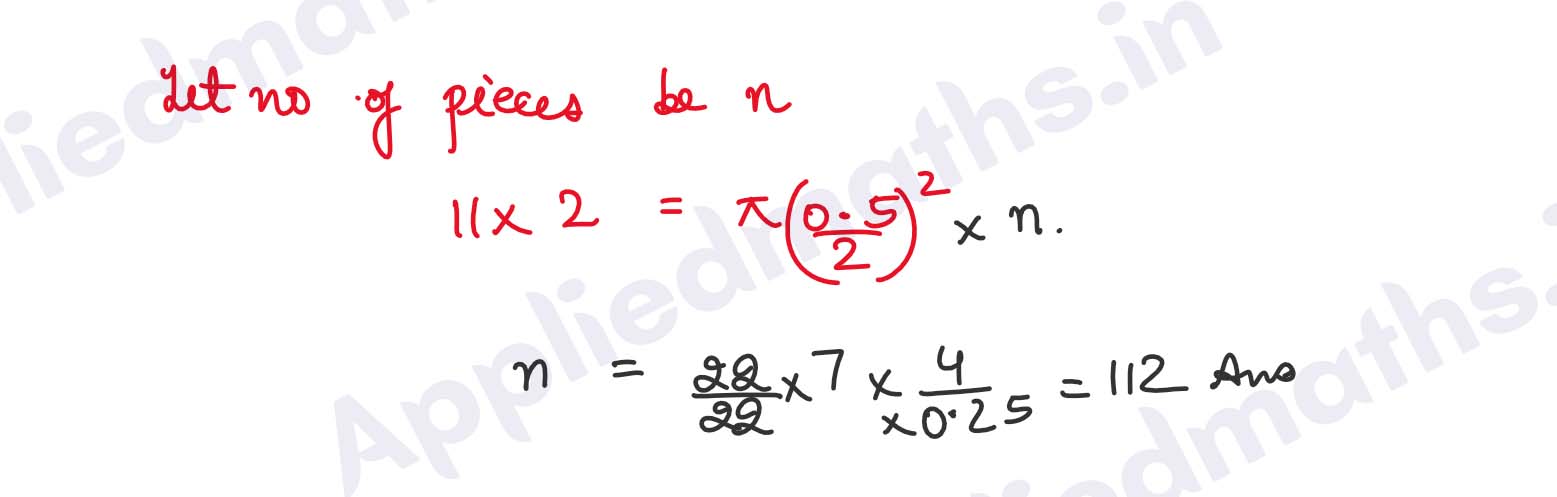 Let no of pieces be n
11 x 2 = π(0.5/2)² x n.
n = 22/22 x 7 x 4/x0.25 = 112 Ans
Appliedmaths.in